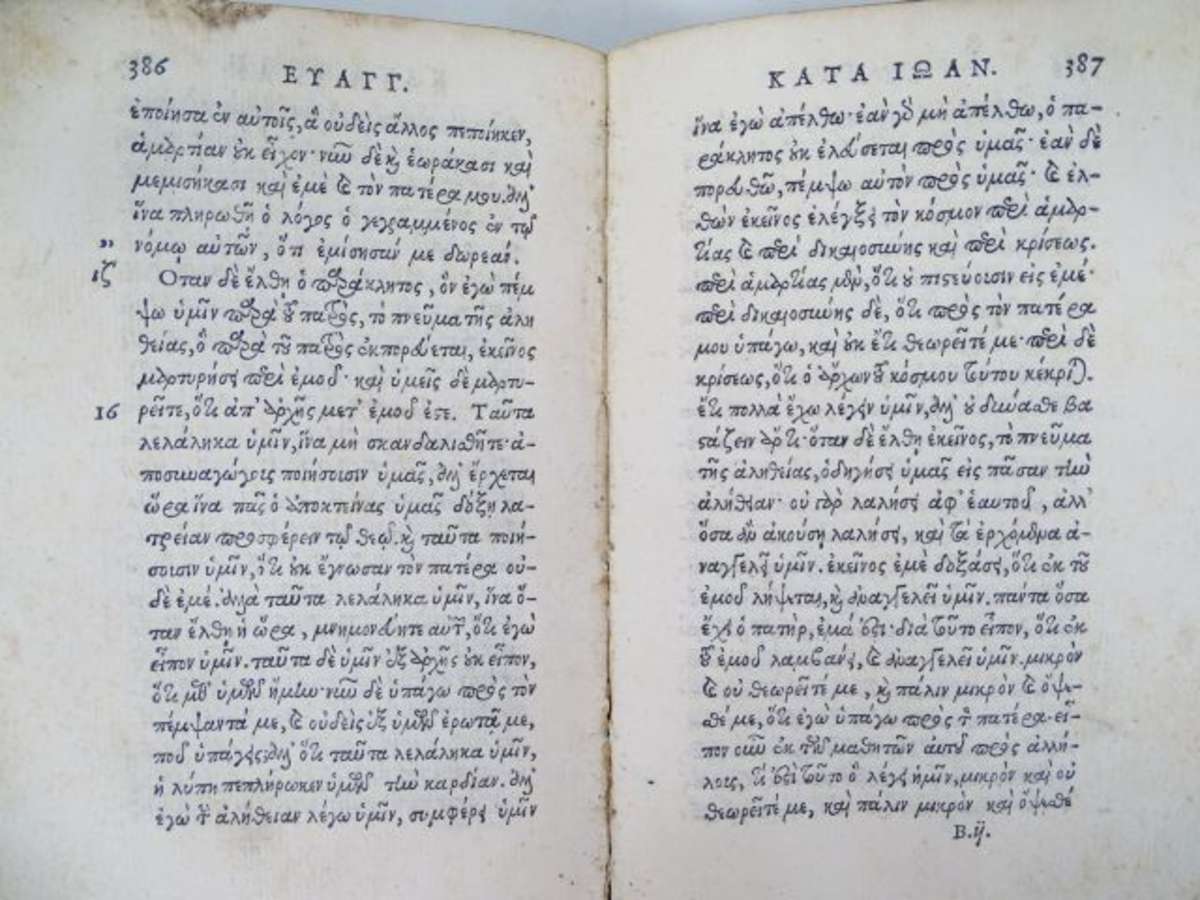 386
ΕΥΑΓΓ.
ἐποίησα ἐν αὐτοῖς, ἃ οὐδεὶς ἄλλος πεποίηκεν,
ἁμαρτίαν οὐκ εἶχον· νῦν δὲ καὶ ἑωράκασι καὶ
μεμισήκασι καὶ ἐμὲ καὶ τὸν πατέρα μου. ἀλλ'
ἵνα πληρωθῇ ὁ λόγος ὁ γεγραμμένος ἐν τῷ
νόμῳ αὐτῶν, ὅτι ἐμίσησάν με δωρεάν.
ιζ Οταν δὲ ἔλθῃ ὁ παράκλητος, ὃν ἐγὼ πέμ
ψω ὑμῖν παρὰ τοῦ πατρὸς, τὸ πνεῦμα τῆς ἀλη
θείας, ὃ παρὰ τοῦ πατρὸς ἐκπορεύεται, ἐκεῖνος
μαρτυρήσει περὶ ἐμοῦ· καὶ ὑμεῖς δὲ μαρτυ-
16 ρεῖτε, ὅτι ἀπ' ἀρχῆς μετ' ἐμοῦ ἐστε. Ταῦτα
λελάληκα ὑμῖν, ἵνα μὴ σκανδαλισθῆτε· ἀ-
ποσυναγώγους ποιήσουσιν ὑμᾶς, ἀλλ' ἔρχεται
ὥρα ἵνα πᾶς ὁ ἀποκτείνας ὑμᾶς δόξῃ λα-
τρείαν προσφέρειν τῷ θεῷ. καὶ ταῦτα ποιή-
σουσιν ὑμῖν, ὅτι οὐκ ἔγνωσαν τὸν πατέρα οὐ-
δὲ ἐμέ. ἀλλὰ ταῦτα λελάληκα ὑμῖν, ἵνα ὅ-
ταν ἔλθῃ ἡ ὥρα, μνημονεύητε αὐτῶν, ὅτι ἐγὼ
εἶπον ὑμῖν. ταῦτα δὲ ὑμῖν ἐξ ἀρχῆς οὐκ εἶπον,
ὅτι μεθ' ὑμῶν ἤμην· νῦν δὲ ὑπάγω πρὸς τὸν
πέμψαντά με, καὶ οὐδεὶς ἐξ ὑμῶν ἐρωτᾷ με,
ποῦ ὑπάγεις; ἀλλ' ὅτι ταῦτα λελάληκα ὑμῖν,
ἡ λύπη πεπλήρωκεν ὑμῶν τὴν καρδίαν. ἀλλ'
ἐγὼ τὴν ἀλήθειαν λέγω ὑμῖν, συμφέρει ὑμῖν
ΚΑΤΑ ΙΩΑΝ.
387
ἵνα ἐγὼ ἀπέλθω· ἐὰν γὰρ μὴ ἀπέλθω, ὁ πα-
ράκλητος οὐκ ἐλεύσεται πρὸς ὑμᾶς· ἐὰν δὲ
πορευθῶ, πέμψω αὐτὸν πρὸς ὑμᾶς· καὶ ἐλ-
θὼν ἐκεῖνος ἐλέγξει τὸν κόσμον περὶ ἁμαρ-
τίας καὶ περὶ δικαιοσύνης καὶ περὶ κρίσεως.
περὶ ἁμαρτίας μὲν, ὅτι οὐ πιστεύουσιν εἰς ἐμέ·
περὶ δικαιοσύνης δὲ, ὅτι πρὸς τὸν πατέρα
μου ὑπάγω, καὶ οὐκ ἔτι θεωρεῖτέ με· περὶ δὲ
κρίσεως, ὅτι ὁ ἄρχων τοῦ κόσμου τούτου κέκριται.
ἔτι πολλὰ ἔχω λέγειν ὑμῖν, ἀλλ' οὐ δύνασθε βα
στάζειν ἄρτι· ὅταν δὲ ἔλθῃ ἐκεῖνος, τὸ πνεῦμα
τῆς ἀληθείας, ὁδηγήσει ὑμᾶς εἰς πᾶσαν τὴν
ἀλήθειαν· οὐ γὰρ λαλήσει ἀφ' ἑαυτοῦ, ἀλλ'
ὅσα ἂν ἀκούσῃ λαλήσει, καὶ τὰ ἐρχόμενα ἀ-
ναγγελεῖ ὑμῖν. ἐκεῖνος ἐμὲ δοξάσει, ὅτι ἐκ τοῦ
ἐμοῦ λήψεται, καὶ ἀναγγελεῖ ὑμῖν. πάντα ὅσα
ἔχει ὁ πατὴρ, ἐμά ἐστι· διὰ τοῦτο εἶπον, ὅτι ἐκ
τοῦ ἐμοῦ λαμβάνει, καὶ ἀναγγελεῖ ὑμῖν. μικρὸν
καὶ οὐ θεωρεῖτέ με, καὶ πάλιν μικρὸν καὶ ὄψε-
θέ με, ὅτι ἐγὼ ὑπάγω πρὸς τὸν πατέρα. εἶ-
πον οὖν ἐκ τῶν μαθητῶν αὐτοῦ πρὸς ἀλλή-
λους, τί ἐστι τοῦτο ὃ λέγει ἡμῖν, μικρὸν καὶ οὐ
θεωρεῖτέ με, καὶ πάλιν μικρὸν καὶ ὄψεσθέ
B.ij.